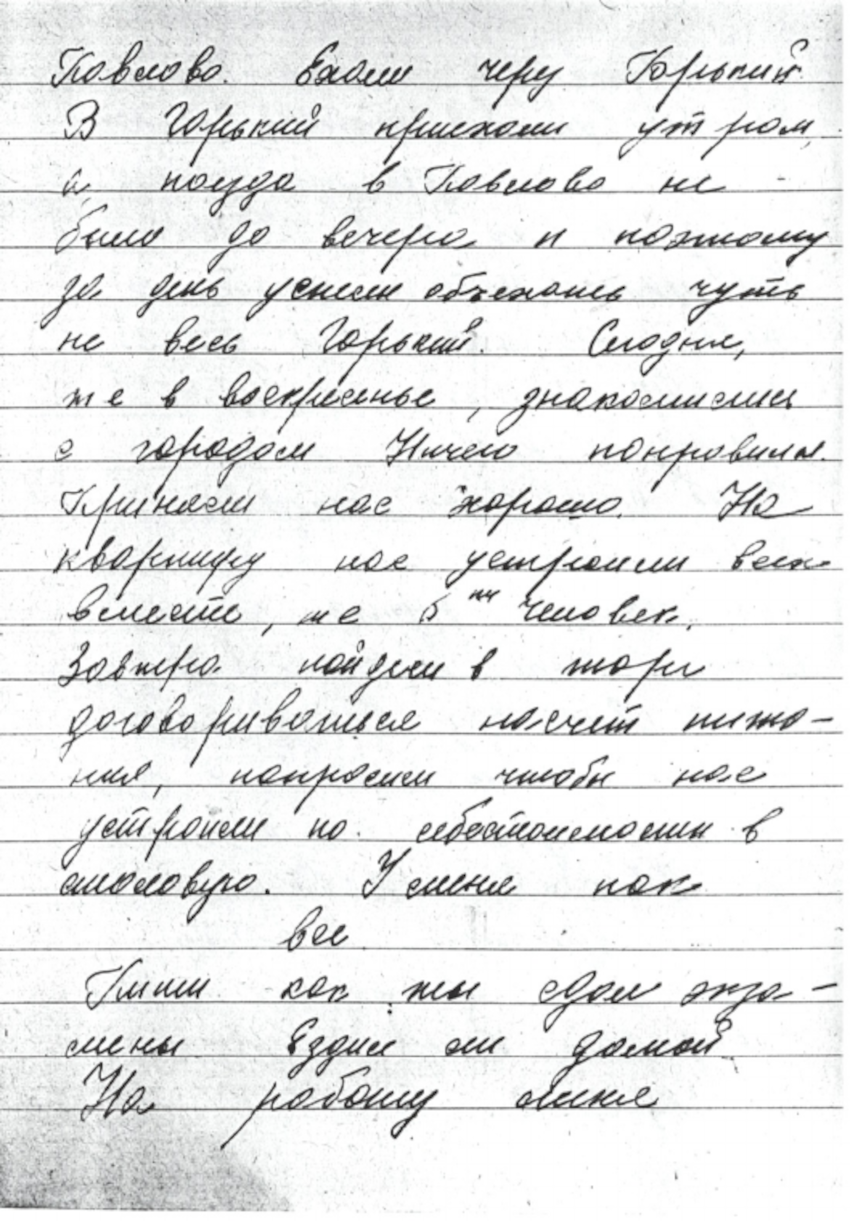 Павлово. Ехали через Горький.
В Горький приехали утром,
а поезда в Павлово не
было до вечера и поэтому
за день успели объехать чуть
не весь Горький. Сегодня,
т.е в воскресенье, знакомились
с городом Ничего понравился.
Приняли нас хорошо. На
квартиру нас устроили всех
вместе, т е 5ти человек.
Завтра пойдем в торг
договариваться насчет пита-
ния, попросим чтобы нас
устроили по себестоимости в
столовую. У меня пока
все
Пиши как ты сдал экза-
мены Ездил ли домой
На работу меня